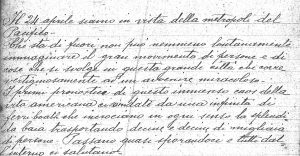 Il 24 aprile siamo in vista della metropoli del
Pacifico.
Chi sta di fuori non può nemmeno lontanamente
immaginare il gran movimento di persone e di
cose che si svolge in questa grande città che corre
vertiginosamente ad un avvenire miracoloso.
I primi pronostici di questo immenso caos della
vita americana ci vien dato da una infinita di
ferri boats che incrociano in ogni senso la splendi
da baia trasportando decine e decine di migliaia
di persone. Passano quasi sfiorandoci e tutti dall'
interno ci salutano